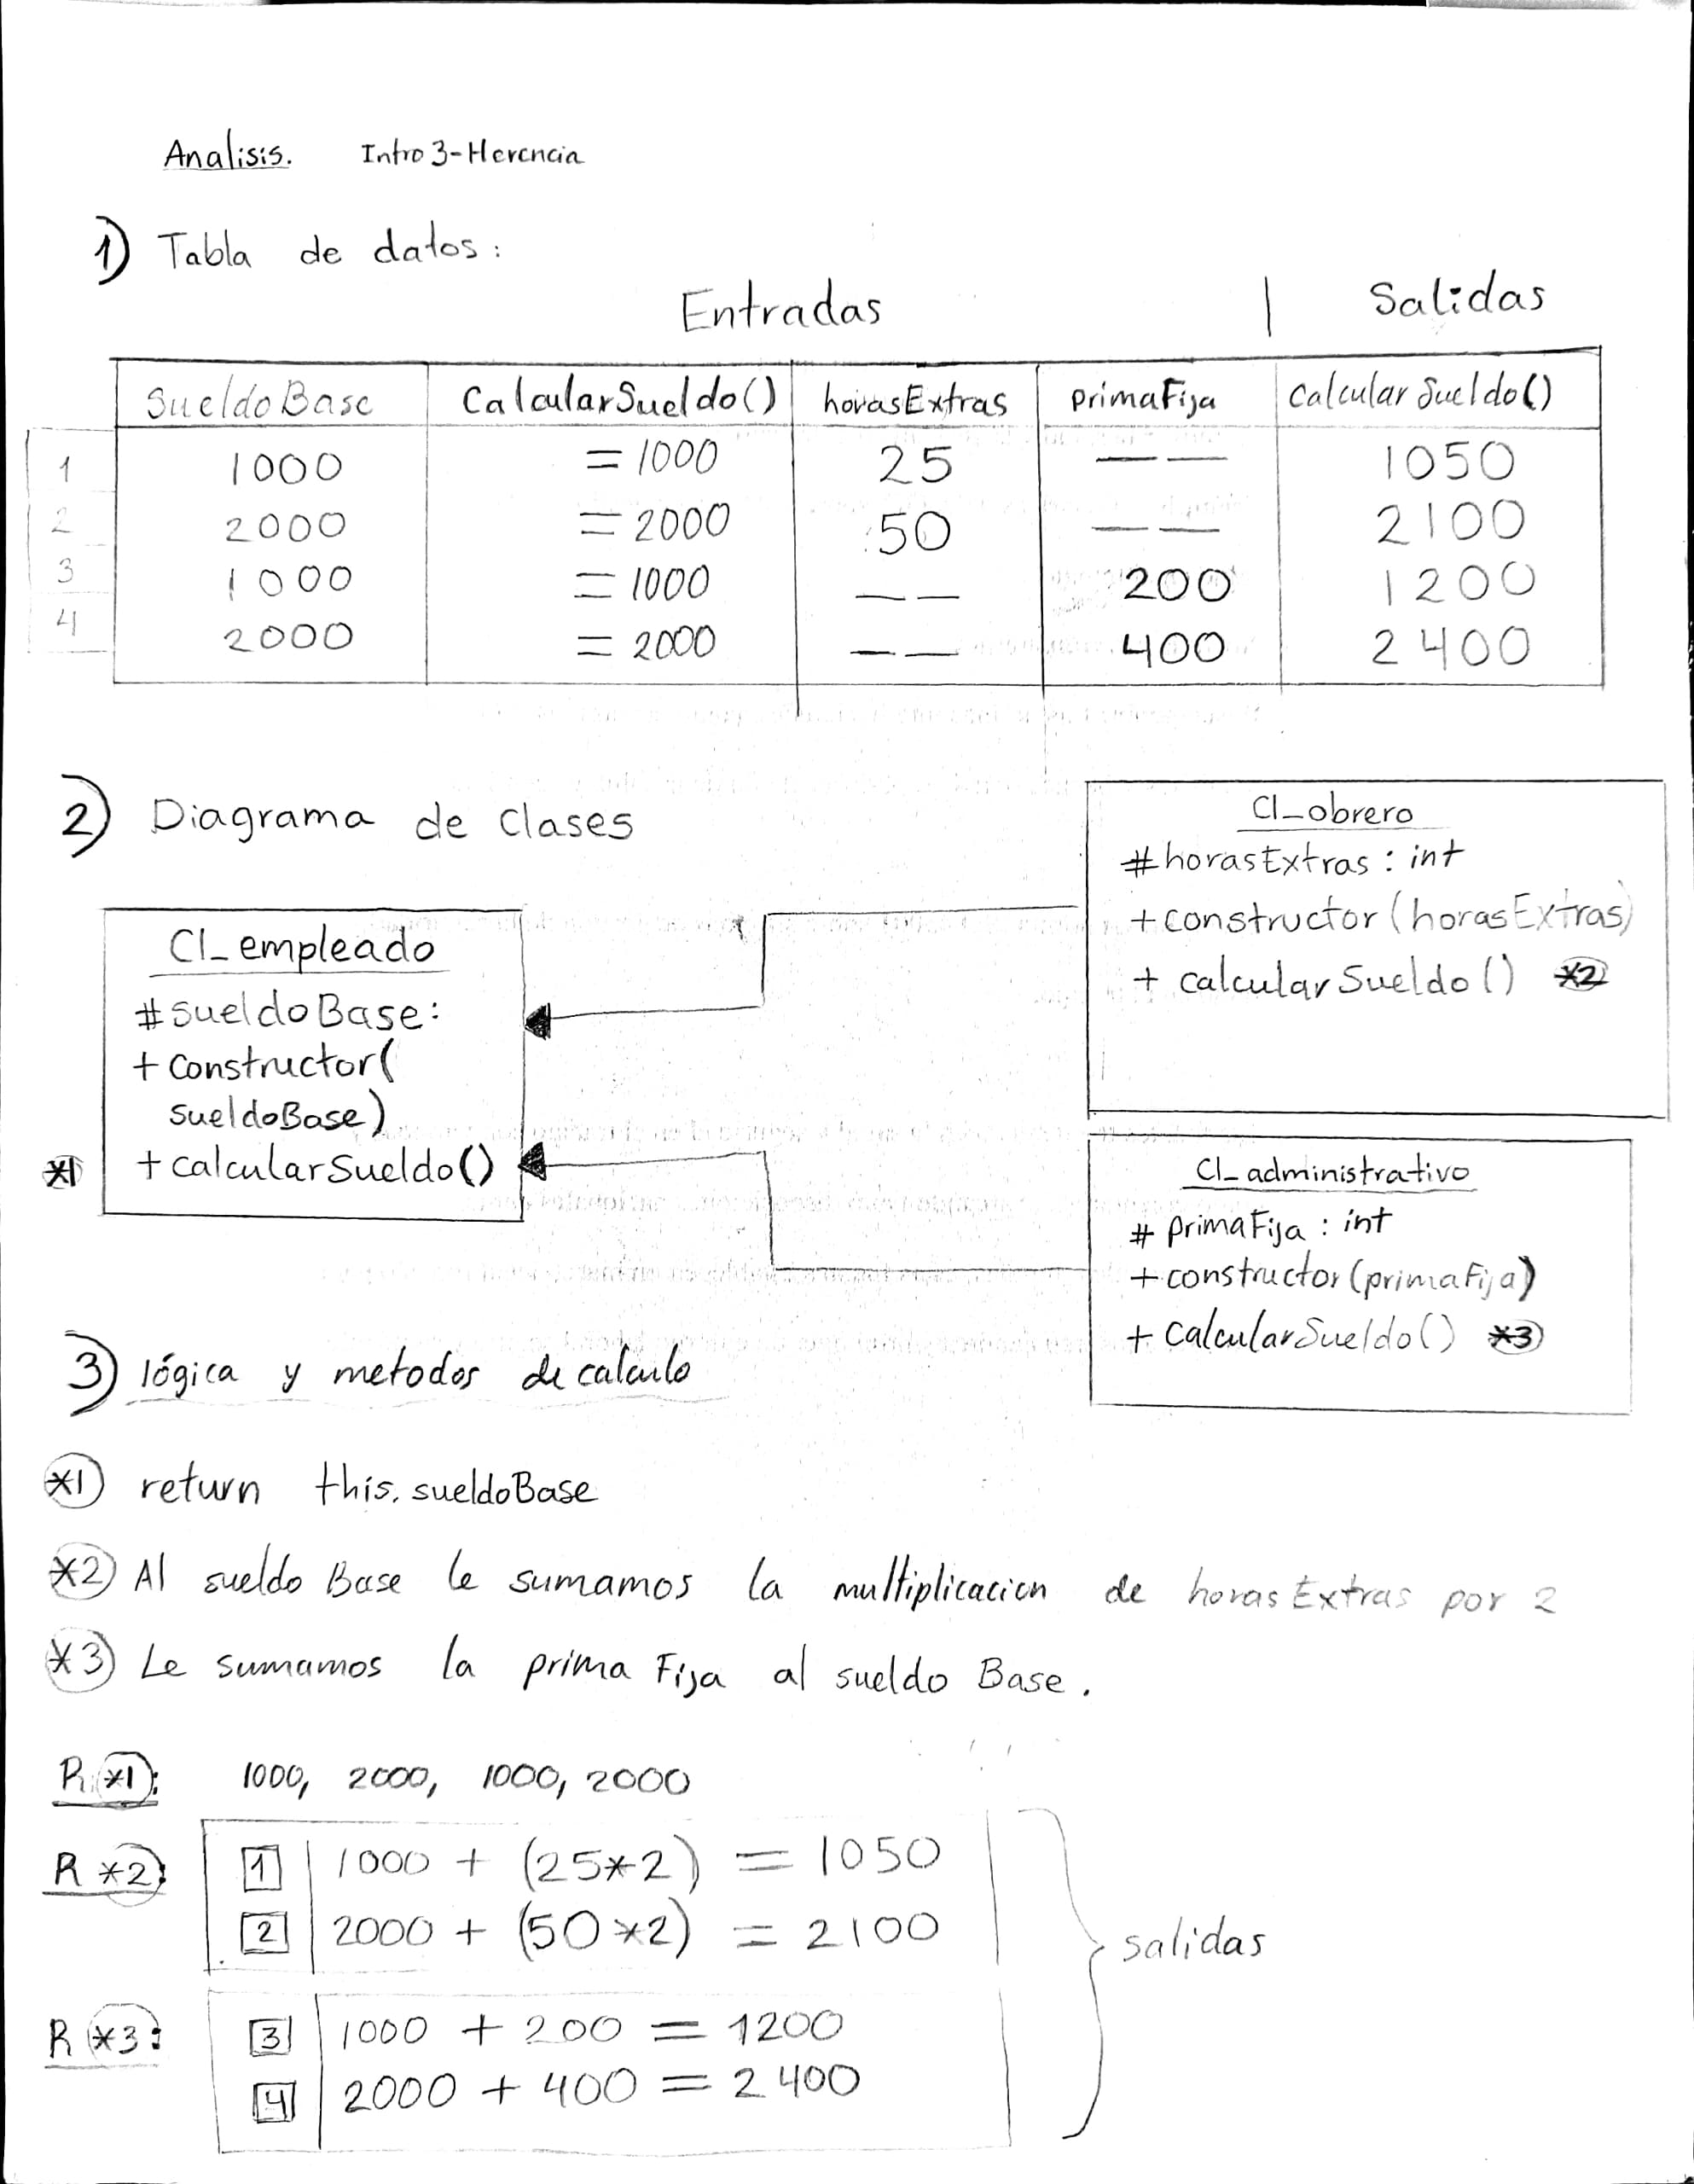 Analisis. Intro 3-Herencia
1) Tabla de datos:
Entradas | Salidas
sueldoBase CalcularSueldo() horasExtras primaFija calcularSueldo()
1 1000 = 1000 25 — — 1050
2 2000 = 2000 50 — — 2100
3 1000 = 1000 — — 200 1200
4 2000 = 2000 — — 400 2400
2) Diagrama de clases
Cl_empleado
#sueldoBase:
+ constructor(
sueldoBase)
*1 + calcularSueldo()
Cl_obrero
#horasExtras: int
+constructor(horasExtras)
+ calcularSueldo() *2
Cl_administrativo
# primaFija: int
+constructor(primaFija)
+ CalcularSueldo() *3
3) lógica y metodos de calculo
*1) return this.sueldoBase
*2) Al sueldo Base le sumamos la multiplicacion de horasExtras por 2
*3) Le sumamos la prima Fija al sueldo Base.
R *1): 1000, 2000, 1000, 2000
R *2): 1 | 1000 + (25*2) = 1050
2 | 2000 + (50*2) = 2100
R *3: 3 | 1000 + 200 = 1200
4 | 2000 + 400 = 2400
salidas